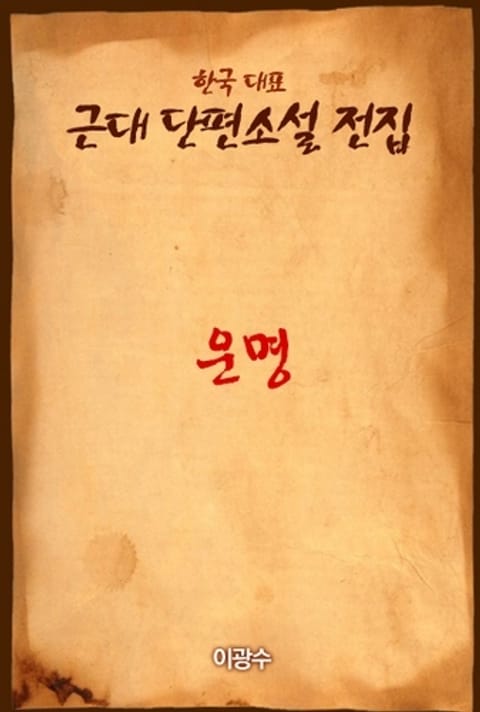 한국 대표
근대 단편소설 전집
운명
이광수